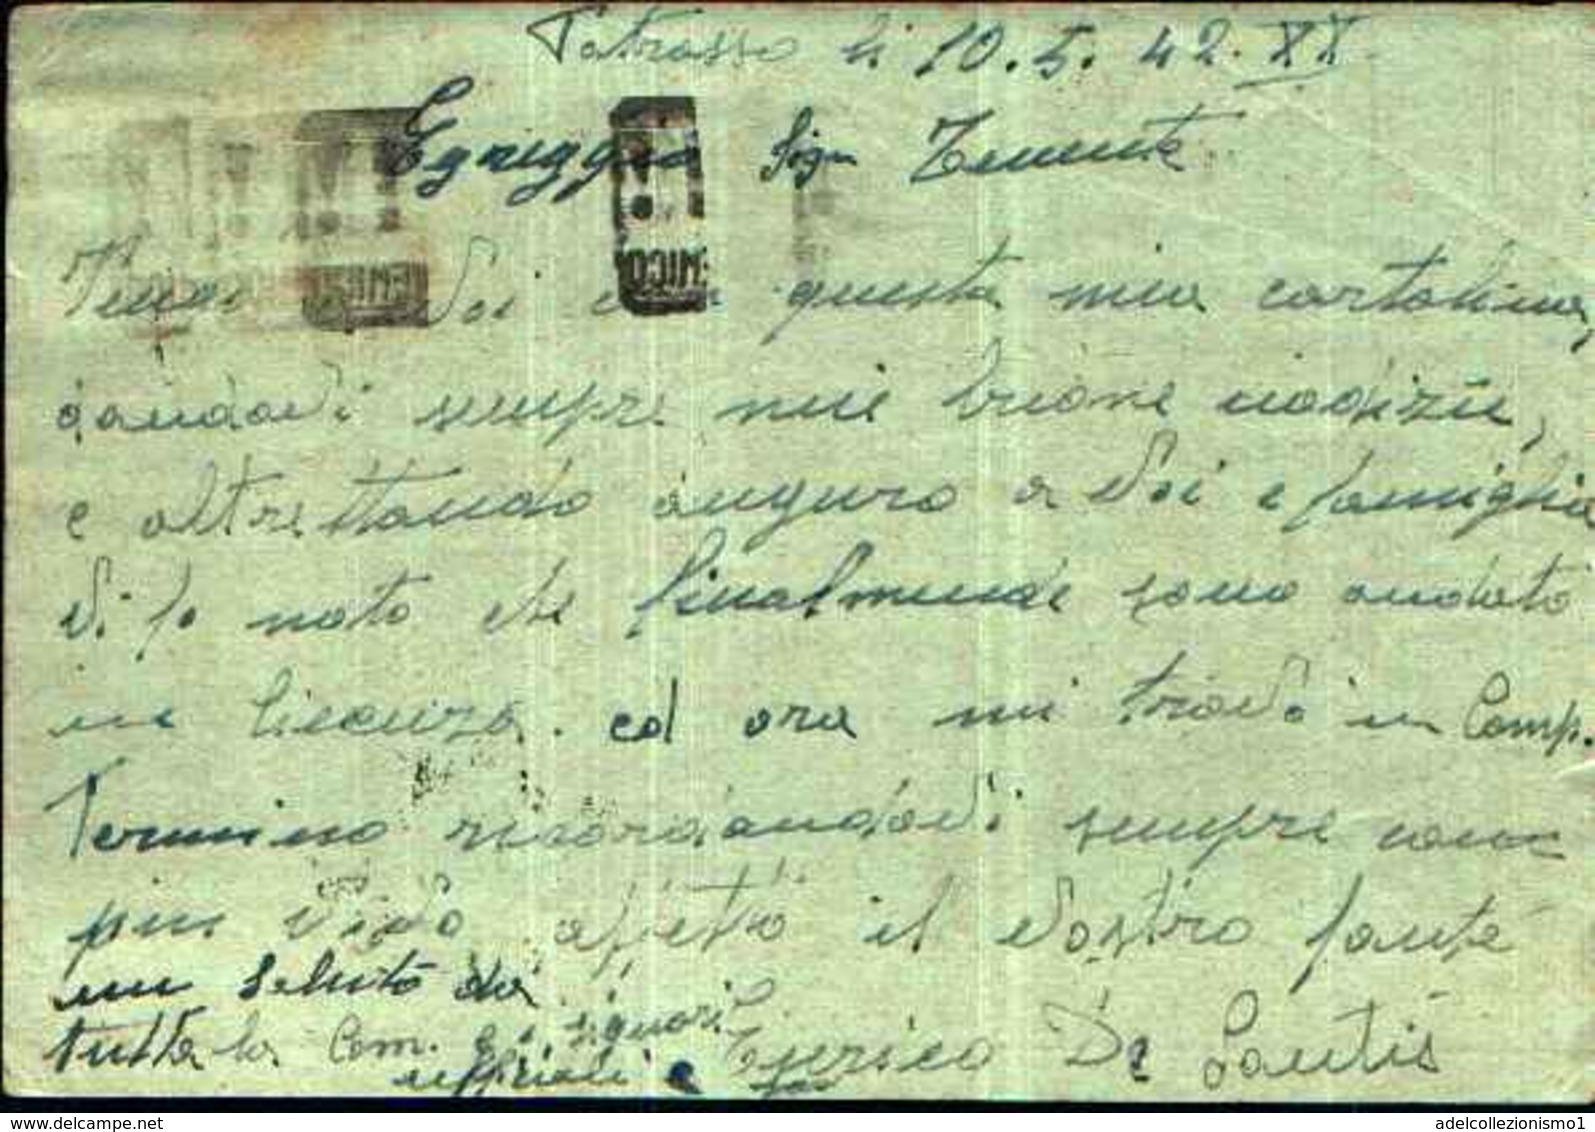 Patrasso li 10.5.42.XX
Egreggio Sign Tenente
Vengo a Voi con questa mia cartolina,
dandovi sempre mie buone notizie,
e altrettando auguro a Voi e famiglia
Vi fo noto che finalmende sono andato
in licenza. ed ora mi trovo in Comp.
Termino ricordandovi sempre con
piu vivo affetto il Vostro fante
un saluto da
tutta la Com. e i signori
ufficiali e
Enrico De Santis
ENICO
EMICO
www.delcampe.net
adelcollezionismo1